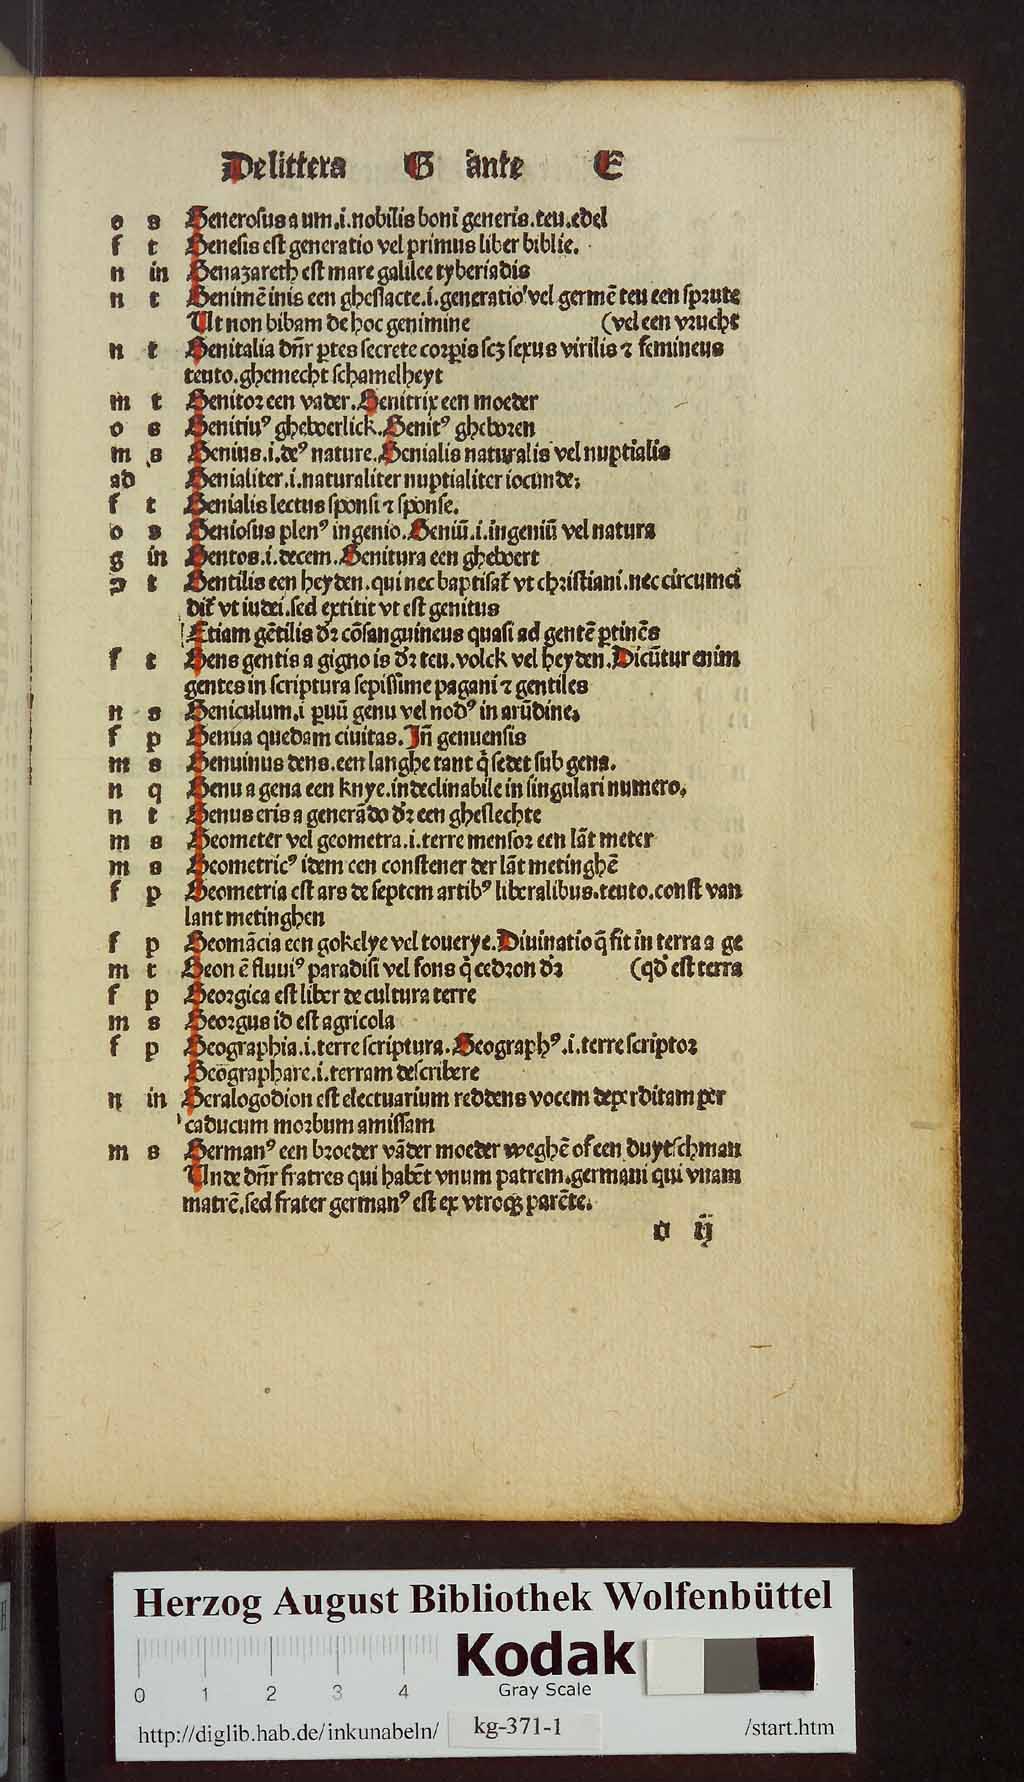 De littera G ante E
o s Generosus a um.i.nobilis boni generis.teu.edel
f t Genesis est generatio vel primus liber biblie.
n in Genazareth est mare galilee tyberiadis
n t Genimē inis een gheslacte.i.generatio vel germē teu een sprute
Ut non bibam de hoc genimine (vel een vrucht
n t Genitalia dn̄r ꝑtes secrete corꝑis scꝫ sexus virilis ⁊ femineus
teuto.ghemecht schamelheyt
m t Genitor een vader.Genitrix een moeder
o s Genitiuꝰ gheboerlick.Genitꝰ gheboren
m s Genius.i.deꝰ nature.Genialis naturalis vel nuptialis
ad Genialiter.i.naturaliter nuptialiter iocunde;
f t Genialis lectus sponsi ⁊ sponse.
o s Geniosus plenꝰ ingenio.Geniū.i.ingeniū vel natura
g in Gentos.i.decem.Genitura een gheboert
ꝯ t Gentilis een heyden.qui nec baptisat᷑ vt christiani.nec circumci
dit᷑ vt iudei.sed extitit vt est genitus
Etiam gētilis dꝛ cōsanguineus quasi ad gentē ꝑtinēs
f t Gens gentis a gigno is dꝛ teu.volck vel heyden.Dicūtur enim
gentes in scriptura sepissime pagani ⁊ gentiles
n s Geniculum.i ꝑuū genu vel nodꝰ in arūdine.
f p Genua quedam ciuitas.Jn̄ genuensis
m s Genuinus dens.een langhe tant q̄ sedet sub gena.
n q Genu a gena een knye.indeclinabile in singulari numero.
n t Genus eris a generādo dꝛ een gheslechte
m s Geometer vel geometra.i.terre mensor een lāt meter
m s Geometricꝰ idem een constener der lāt metinghē
f p Geometria est ars de septem artibꝰ liberalibus.teuto.const van
lant metinghen
f p Geomācia een gokelye vel touerye.Diuinatio q̄ fit in terra a ge
m t Geon ē fluuiꝰ paradisi vel fons q̄ cedron dꝛ (qđ est terra
f p Georgica est liber de cultura terre
m s Georgus id est agricola
f p Geographia.i.terre scriptura.Geographꝰ.i.terre scriptor
Geographare.i.terram describere
n in Geralogodion est electuarium reddens vocem deperditam per
caducum morbum amissam
m s Germanꝰ een broeder vāder moeder weghē of een duytschman
Unde dn̄r fratres qui habēt vnum patrem.germani qui vnam
matrē.sed frater germanꝰ est ex vtroqꝫ parēte.
o ij
Herzog August Bibliothek Wolfenbüttel
Kodak
Gray Scale
0 1 2 3 4
http://diglib.hab.de/inkunabeln/ kg-371-1 /start.htm